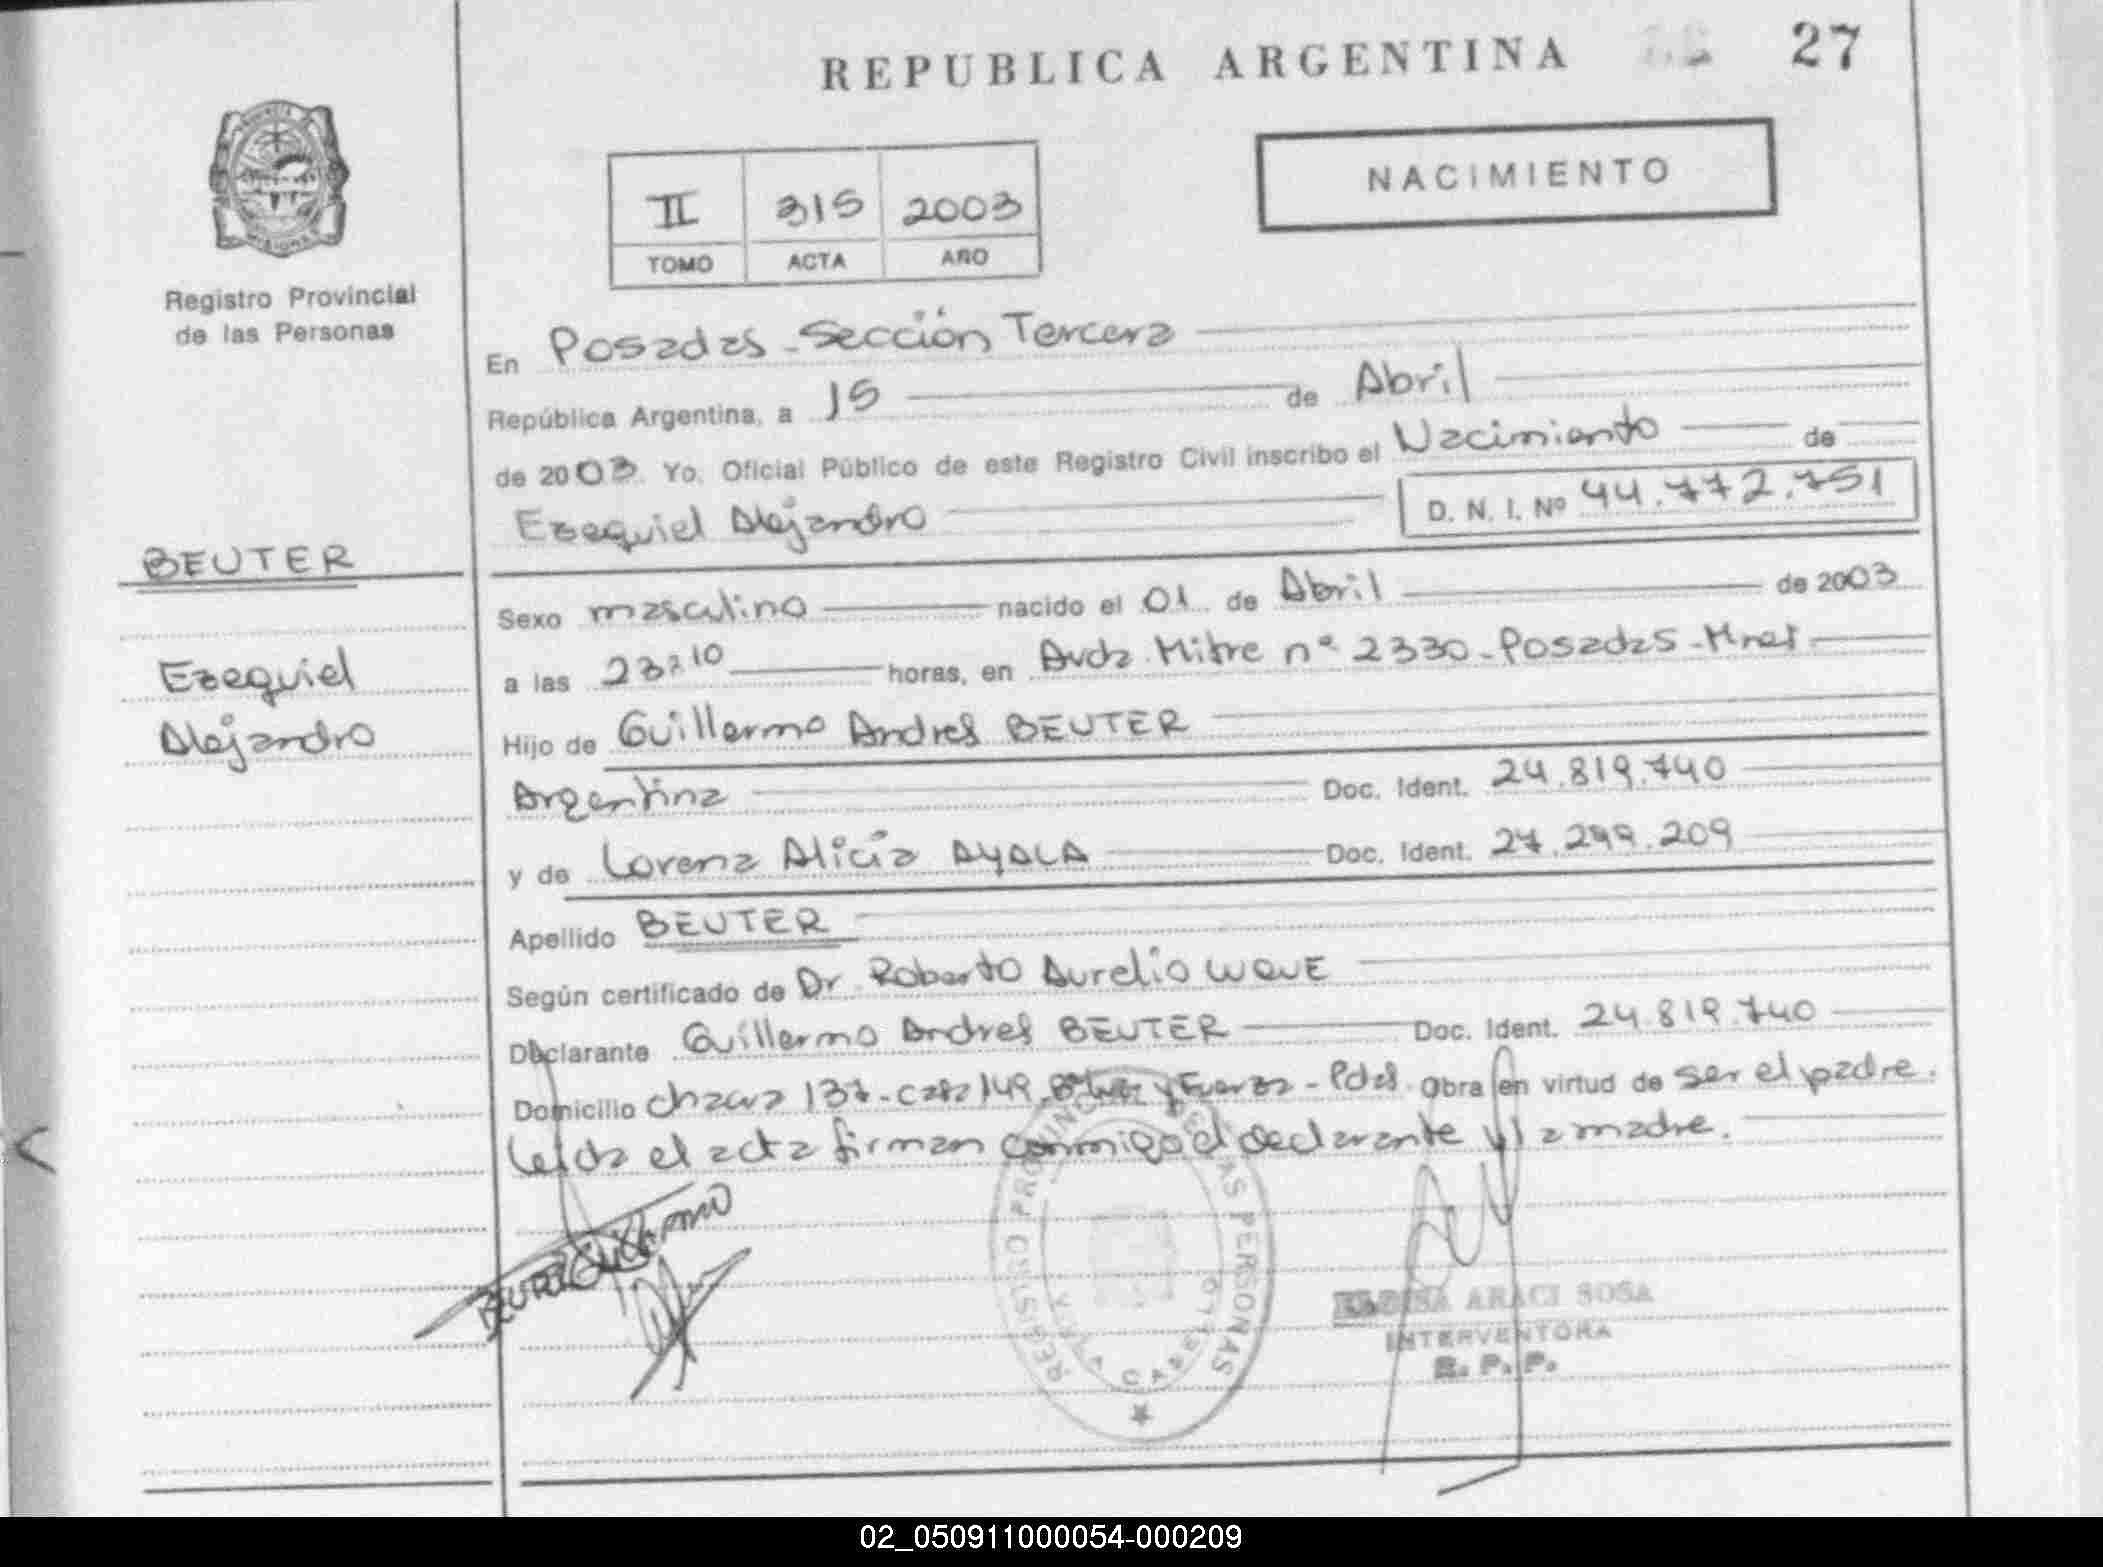 REPUBLICA ARGENTINA 27
NACIMIENTO
II 315 2003
TOMO ACTA AÑO
Registro Provincial
de las Personas
En Posadas - Sección Tercera
República Argentina, a 15 de Abril
de 2003. Yo, Oficial Público de este Registro Civil inscribo el Nacimiento de
Ezequiel Alejandro D. N. I. Nº 44.772.751
BEUTER
Ezequiel
Alejandro
Sexo masculino nacido el 01 de Abril de 2003
a las 23:10 horas, en Avda Mitre nº 2330 - Posadas - Mnes
Hijo de Guillermo Andres BEUTER
Argentina Doc. Ident. 24.819.740
y de Lorena Alicia AYALA Doc. Ident. 27.299.209
Apellido BEUTER
Según certificado de Dr Roberto Aurelio
Declarante Guillermo Andres BEUTER Doc. Ident. 24.819.740
Domicilio chacra 137 - casa 149 - - Pdas. Obra en virtud de ser el padre.
Leida el acta firman conmigo el declarante y la madre.
REGISTRO PROVINCIAL DE LAS PERSONAS
ARACI SOSA
INTERVENTORA
R. P. P.
02_050911000054-000209